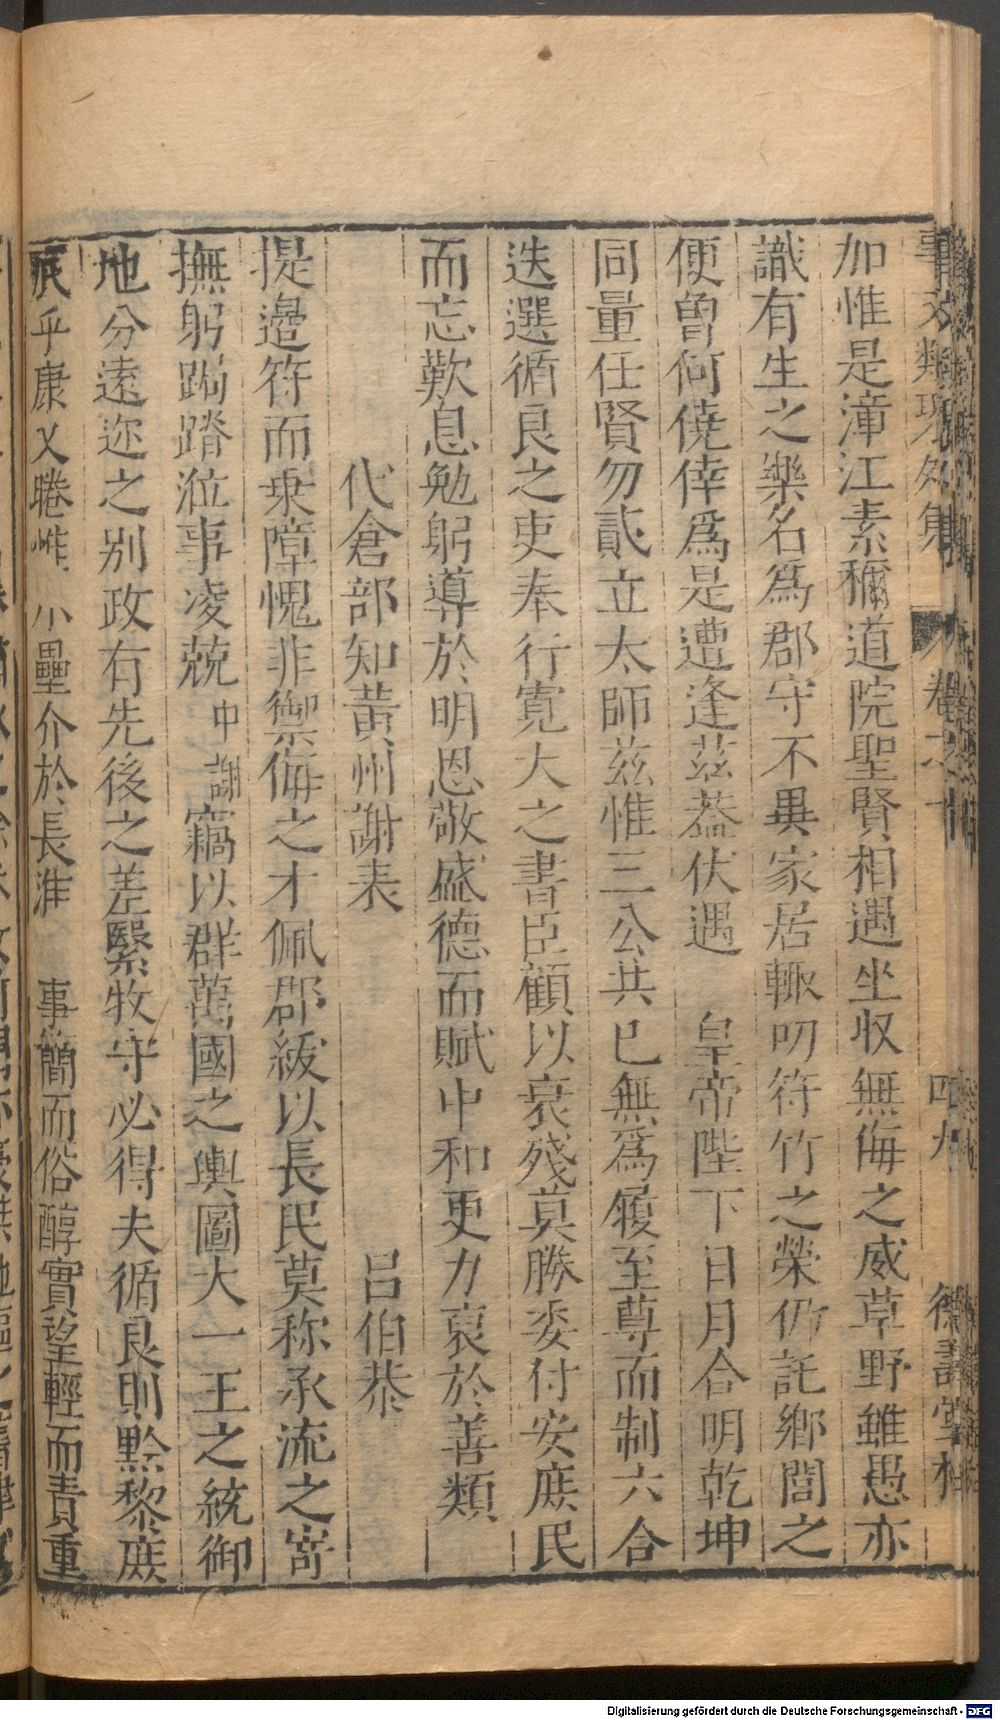 加惟是漳江素稱道院聖賢相遇坐収無侮之威草野雖愚亦
識有生之樂名爲郡守不異家居輙叨符竹之榮仍託鄉閭之
便曽何僥倖爲是遭逢茲葢伏遇　皇帝陛下日月合明乾坤
同量任賢勿貳立太師茲惟三公共已無爲履至尊而制六合
迭選循良之吏奉行寛大之書臣顧以衰殘莫勝委付安庶民
而忘歎息勉躬導於明恩敬盛德而賦中和更力裒於善類
代倉部知黃州謝表　呂伯恭
提邉符而乗障愧非禦侮之才佩郡紱以長民莫称承流之寄
撫躬跼蹐涖事凌兢中謝竊以群萬國之輿圖大一王之統御
地分遠迩之别政有先後之差緊牧守必得夫循良則黔黎庶
乎康乂睠惟小壘介於長淮事簡而俗醇實望輕而責重
卷之十
四九
Digitalisierung gefördert durch die Deutsche Forschungsgemeinschaft - DFG